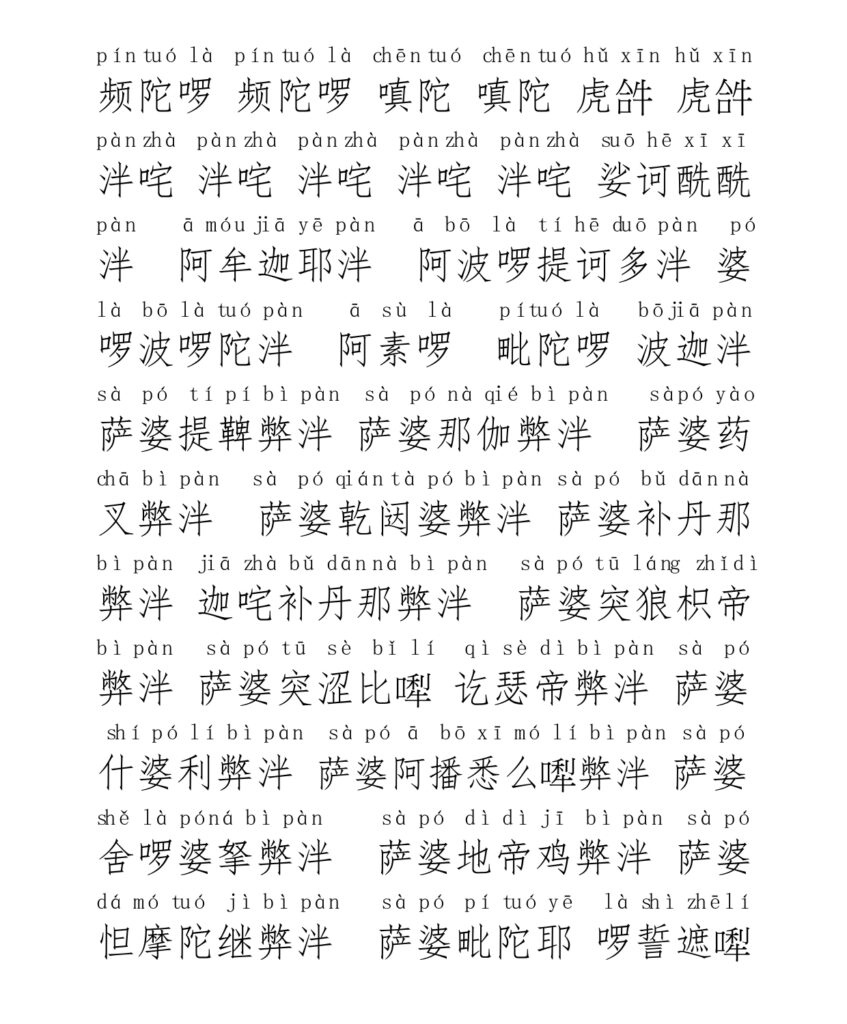 pín tuó là pín tuó là chēn tuó chēn tuó hǔ xīn hǔ xīn
频陀啰 频陀啰 嗔陀 嗔陀 虎𤙖 虎𤙖
pàn zhà pàn zhà pàn zhà pàn zhà pàn zhà suō hē xī xī
泮咤 泮咤 泮咤 泮咤 泮咤 娑诃醯醯
pàn ā móu jiā yē pàn ā bō là tí hē duō pàn pó
泮 阿牟迦耶泮 阿波啰提诃多泮 婆
là bō là tuó pàn ā sù là pí tuó là bō jiā pàn
啰波啰陀泮 阿素啰 毗陀啰 波迦泮
sà pó tí pí bì pàn sà pó nà qié bì pàn sà pó yào
萨婆提鞞弊泮 萨婆那伽弊泮 萨婆药
chā bì pàn sà pó qián tà pó bì pàn sà pó bǔ dān nà
叉弊泮 萨婆乾闼婆弊泮 萨婆补丹那
bì pàn jiā zhà bǔ dān nà bì pàn sà pó tū láng zhǐ dì
弊泮 迦咤补丹那弊泮 萨婆突狼枳帝
bì pàn sà pó tū sè bǐ lí qì sè dì bì pàn sà pó
弊泮 萨婆突涩比㗚 讫瑟帝弊泮 萨婆
shí pó lí bì pàn sà pó ā bō xī mó lí bì pàn sà pó
什婆利弊泮 萨婆阿播悉么㗚弊泮 萨婆
shě là pó ná bì pàn sà pó dì dì jī bì pàn sà pó
舍啰婆拏弊泮 萨婆地帝鸡弊泮 萨婆
dá mó tuó jì bì pàn sà pó pí tuó yē là shì zhē lí
怛摩陀继弊泮 萨婆毗陀耶 啰誓遮㗚